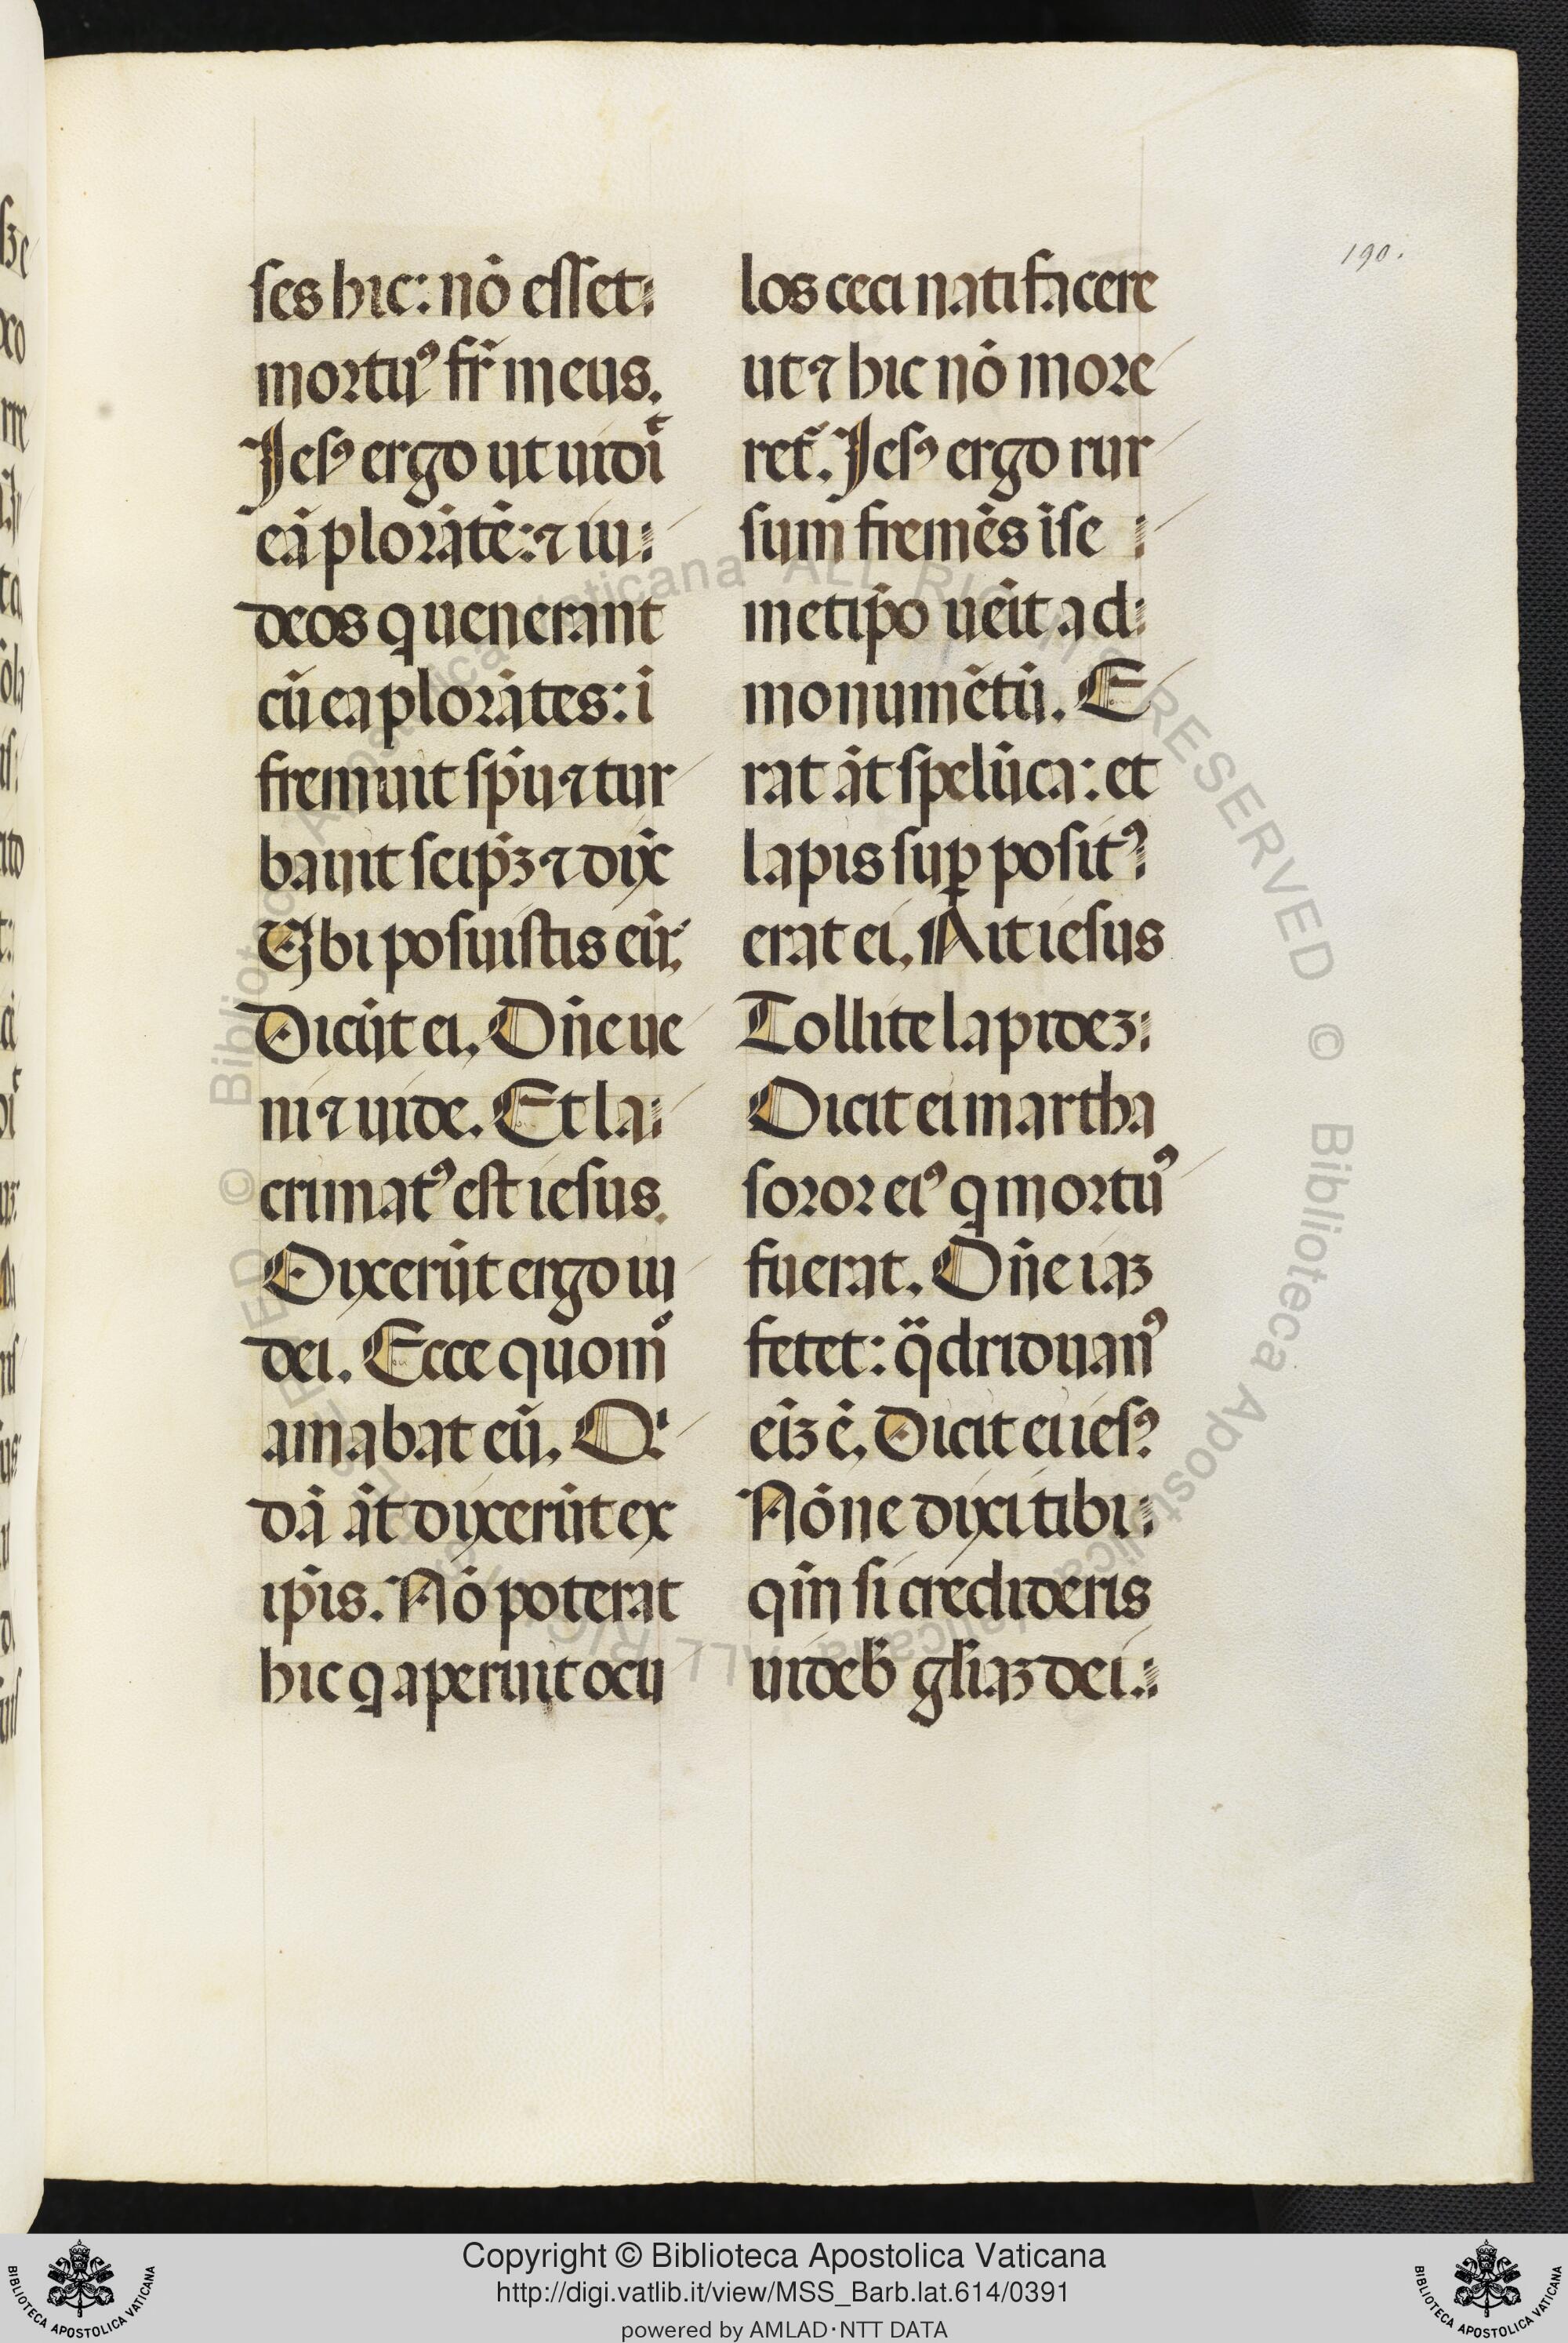 190.
ses hic: nō esset
mortuꝰ fr̄ meus.
Jesꝰ ergo ut uidīt
eā plorātē: ⁊ iu
deos q uenerant
cū ea plorātes: ī
fremuit sp̄u ⁊ tur
bauit seip̄ꝫ ⁊ dix̄
Ubi posuistis eū:
Dicūt ei. Dn̄e ue
ni ⁊ uide. Et la
crimatꝰ est iesus.
Dixerūt ergo iu
dei. Ecce quom̊
amabat eū. Q
dā āt dixerūt ex
ip̄is. Nō poterat
hic q aperuit ocu
los ceci nati facere
ut ⁊ hic nō more
ret᷑. Jesꝰ ergo rur
sum fremēs ī se
metip̄o uēit ad
monumētū. E
rat āt spelūca: et
lapis suꝑ positꝰ
erat ei. Ait iesus
Tollite lapideꝫ
Dicit ei martha
soror eiꝰ q mortuꝰ
fuerat. Dn̄e iaꝫ
fetet: q̈driduanꝰ
eīꝫ ē. Dicit ei iesꝰ
Nōne dixi tibi
qm̄ si credideris
uideb̄ gl̄iaꝫ dei.
Copyright © Biblioteca Apostolica Vaticana
http://digi.vatlib.it/view/MSS_Barb.lat.614/0391
powered by AMLAD·NTT DATA
BIBLIOTECA APOSTOLICA VATICANA
BIBLIOTECA APOSTOLICA VATICANA